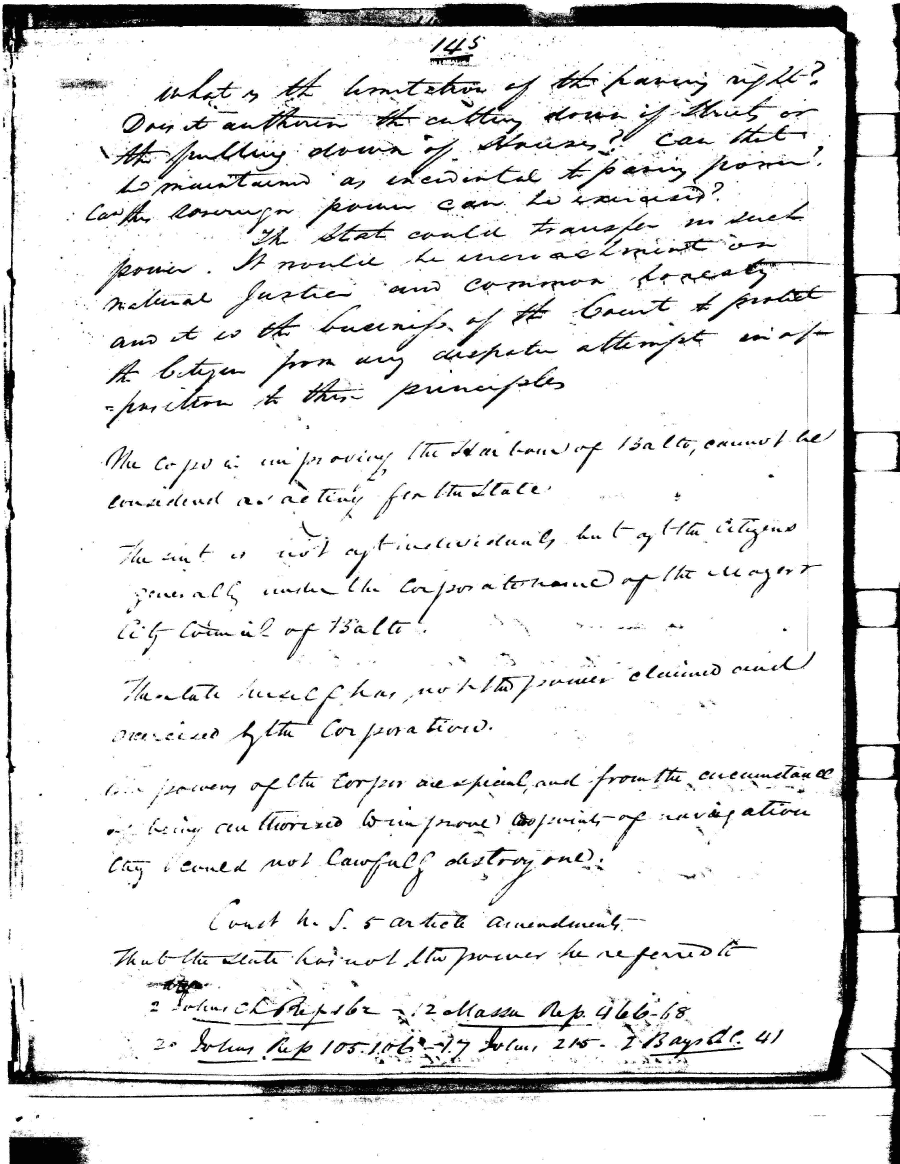 145
what is the limitation of the paving right?
Does it authorise the cutting down of Streets or
the pulling down of Houses? Can that
be maintained as incidental to paving power?
Can this sovereign power can be exercised?
The State could transfer no such
power. It would be encroachment on
natural Justice and common honesty
and it is the business of the Court to protect
the Citizen from any attempt in op-
=position to this principles
The Corpo in improving the Harbour of Balto, cannot be
considered as acting for the State.
The suit is not agt individuals but agt the Citizens
generally under the Corporate name of the Mayor &
City Council of Balto.
The state herself has not the power claimed and
exercised by the Corporation.
powers of the Corpor are special, and from the circumstance
of being authorized to improve points of navigation
they could not lawfully destroy one.
Const U. S. 5 article amendments
That the state has not the power he referred to
2 Johns Ch Rep 162 - 12 Massa Rep. 466-68
20 Johns Rep 105.106 - 17 Johns 215 - 2 Bays S.C. 41